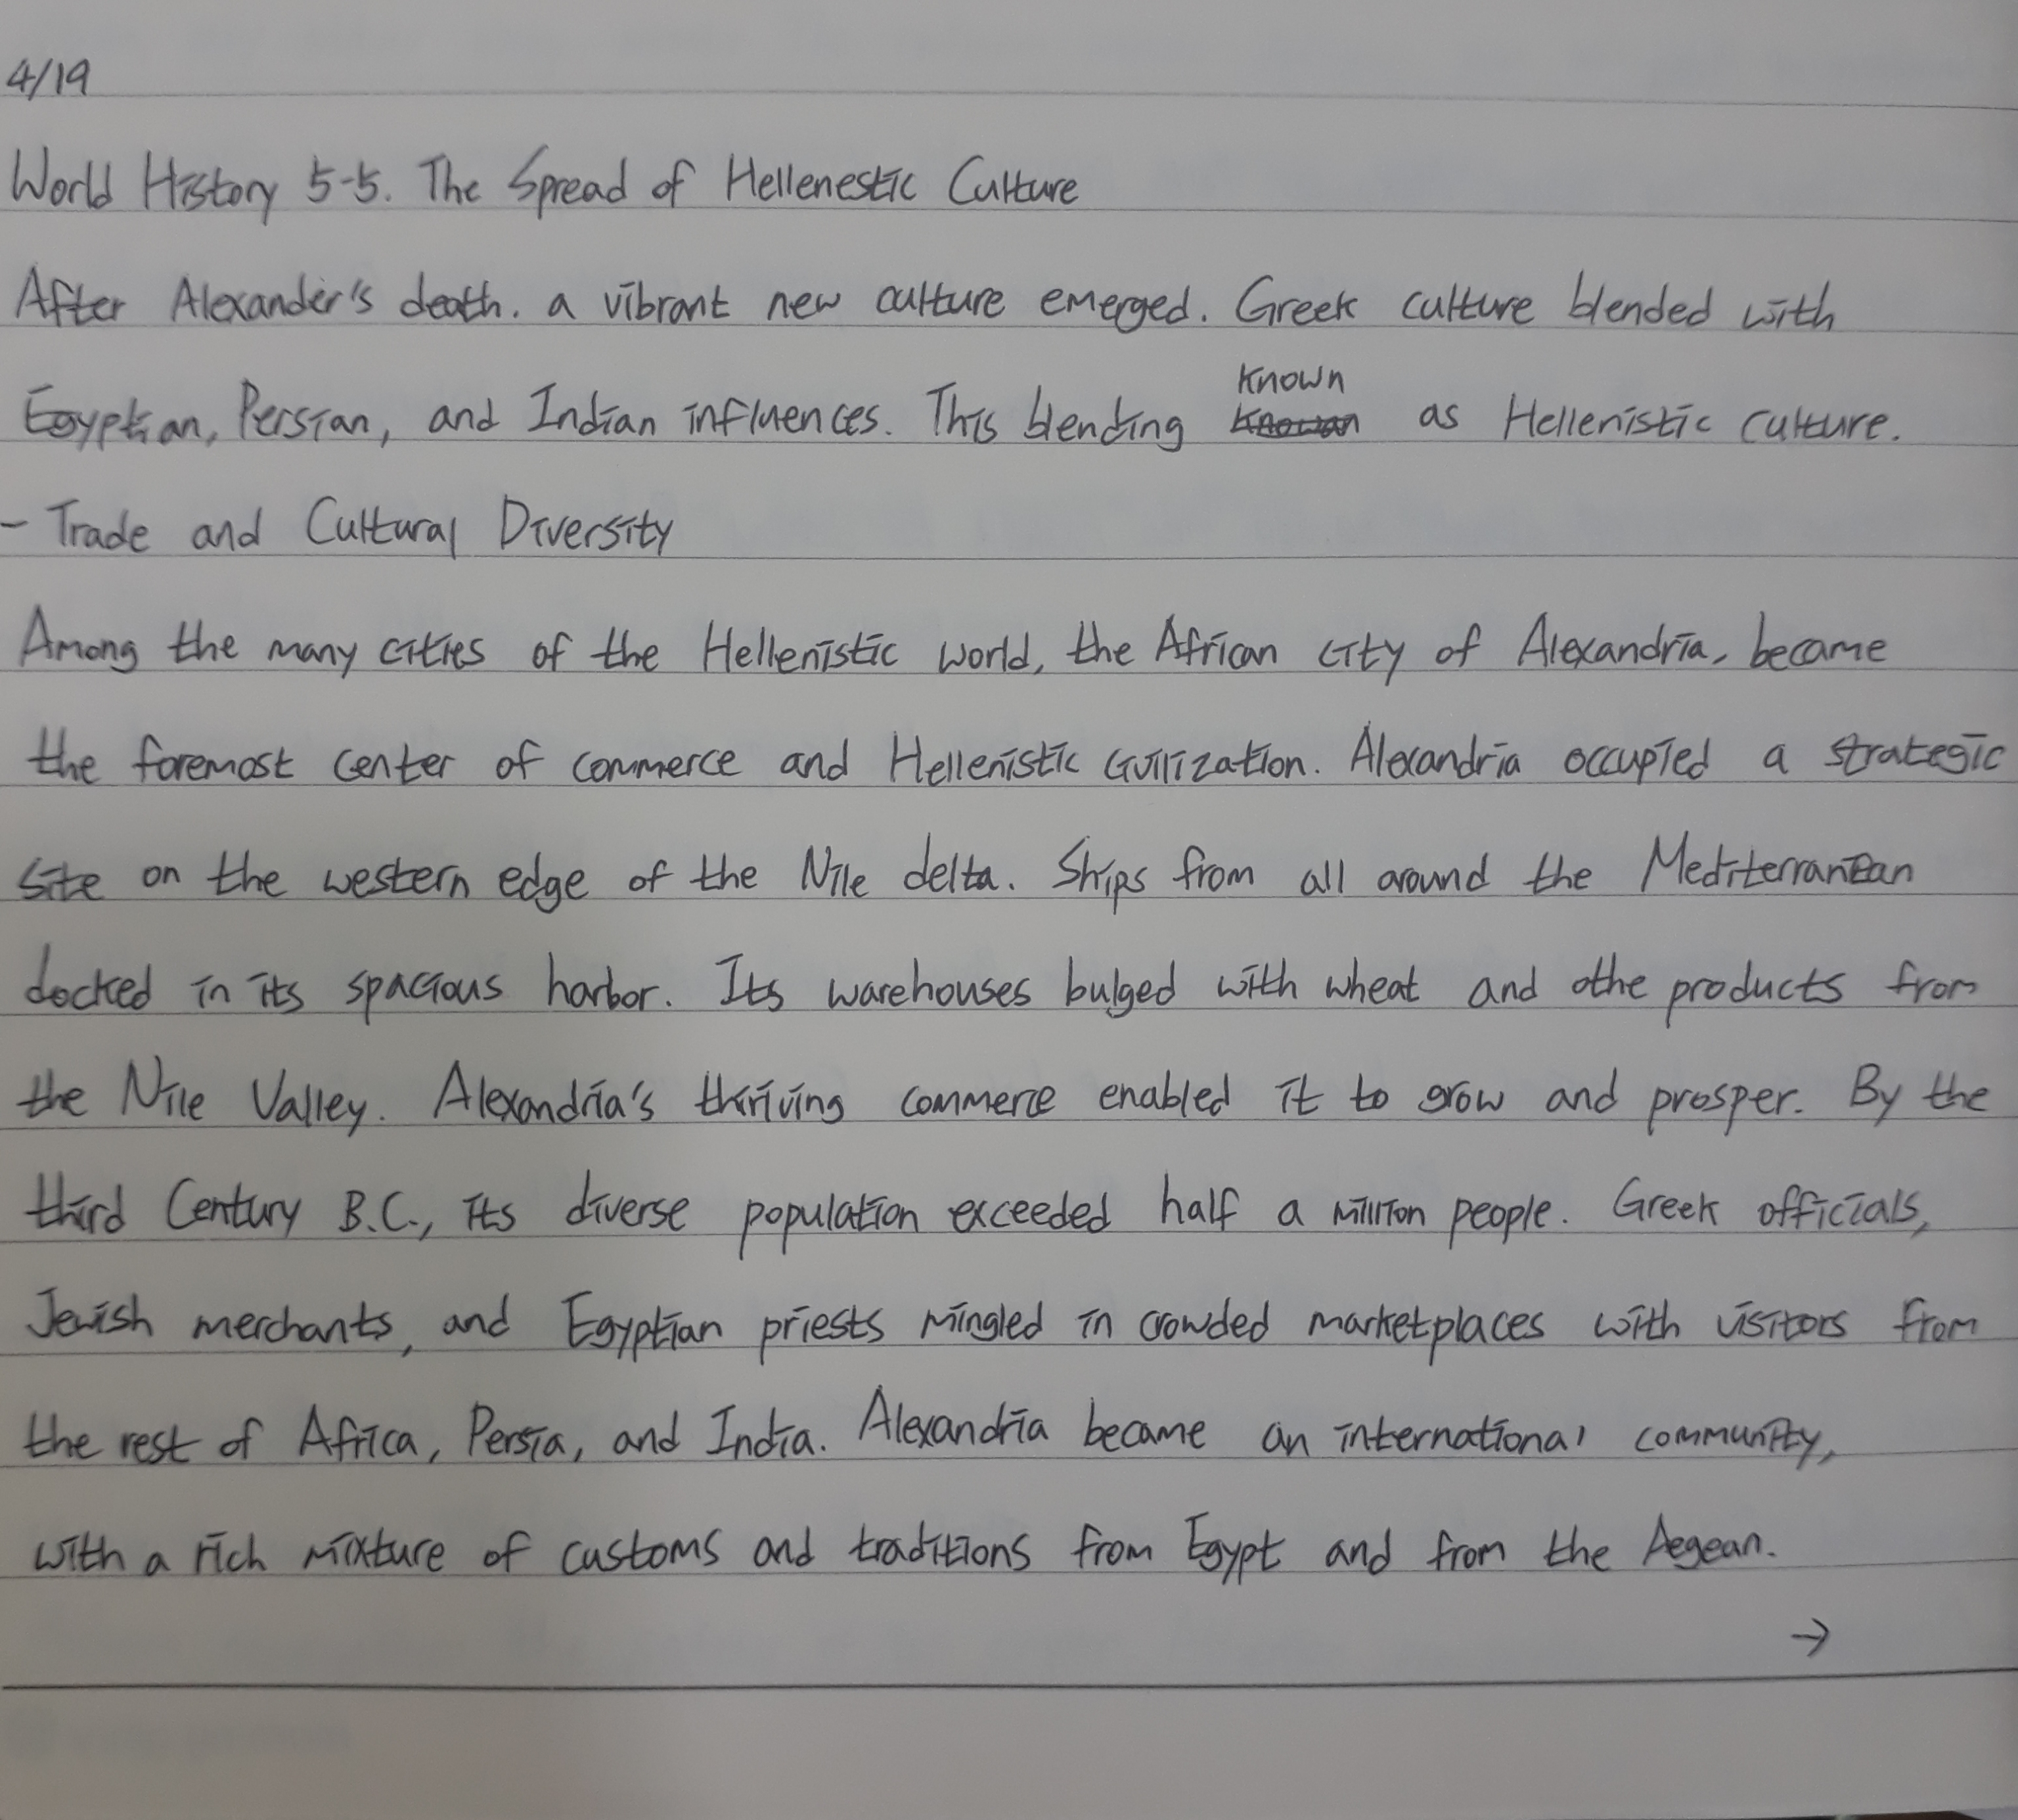 4/19
World History 5-5. The Spread of Hellenestic Culture
After Alexander's death. a vibrant new culture emerged. Greek culture blended with
Known
Egyptian, Persian, and Indian influences. This blending as Hellenistic culture.
- Trade and Cultural Diversity
Among the many cities of the Hellenistic world, the African city of Alexandria, became
the foremost center of commerce and Hellenistic civilization. Alexandria occupied a strategic
site on the western edge of the Nile delta. Ships from all around the Mediterranean
docked in its spacious harbor. Its warehouses bulged with wheat and othe products from
the Nile Valley. Alexandria's thriving commerce enabled it to grow and prosper. By the
third Century B.C., its diverse population exceeded half a million people. Greek officials,
Jewish merchants, and Egyptian priests mingled in crowded marketplaces with visitors from
the rest of Africa, Persia, and India. Alexandria became an international community,
with a rich mixture of customs and traditions from Egypt and from the Aegean.
→